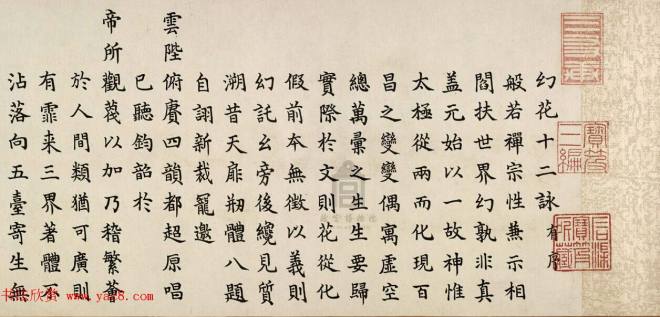 幻花十二詠 有序
般若禪宗性兼示相
閻扶世界幻孰非真
蓋元始以一故神惟
太極從兩而化現百
昌之變變偶寓虛空
總萬彙之生生要歸
實際於文則花從化
假前本無徵以義則
幻託幺旁後纔見質
溯昔天扉剏體八題
自詡新裁寵邀
雲陛俯賡四韻都超原唱
已聽鈞韶於
帝所觀蔑以加乃稽繁薈
於人間類猶可廣則
有霏来三界著體不
沾落向五臺寄生無
寶笈三編
石渠寶笈所藏
书法欣赏 www.yac8.com